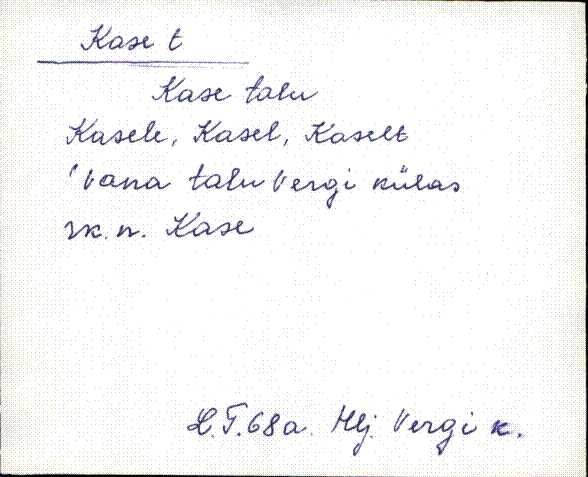 Kase t
Kase talu
Kasele, Kasel, Kaselt
'Vana talu Vergi külas
rk. n. Kase
L.T.68a. Hlj. Vergi k.